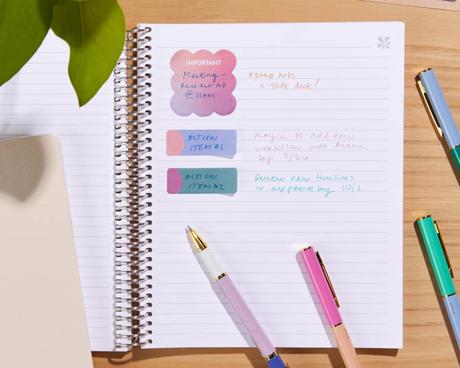 IMPORTANT
Meeting -
Review AP
@ 11am
+ slide deck!
ACTION
ITEM #1
Kayla to add new
workflow into Asana
by 9/26
ACTION
ITEM #2
Review new timelines
+ approve by 10/2